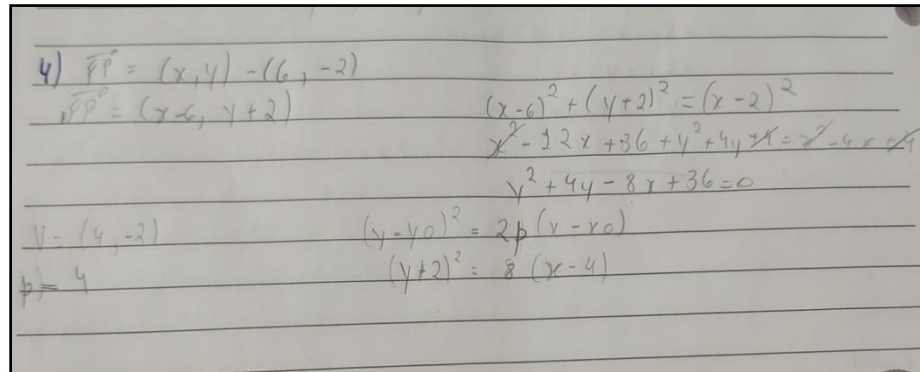 4) FP = (x, y) - (6, -2)
FP = (x-6, y+2)
(x-6)² + (y+2)² = (x-2)²
x² - 12x + 36 + y² + 4y + 4 = x² - 4x + 4
y² + 4y - 8x + 36 = 0
V = (4, -2)
(y - y0)² = 2p (x - x0)
p = 4
(y+2)² = 8 (x - 4)